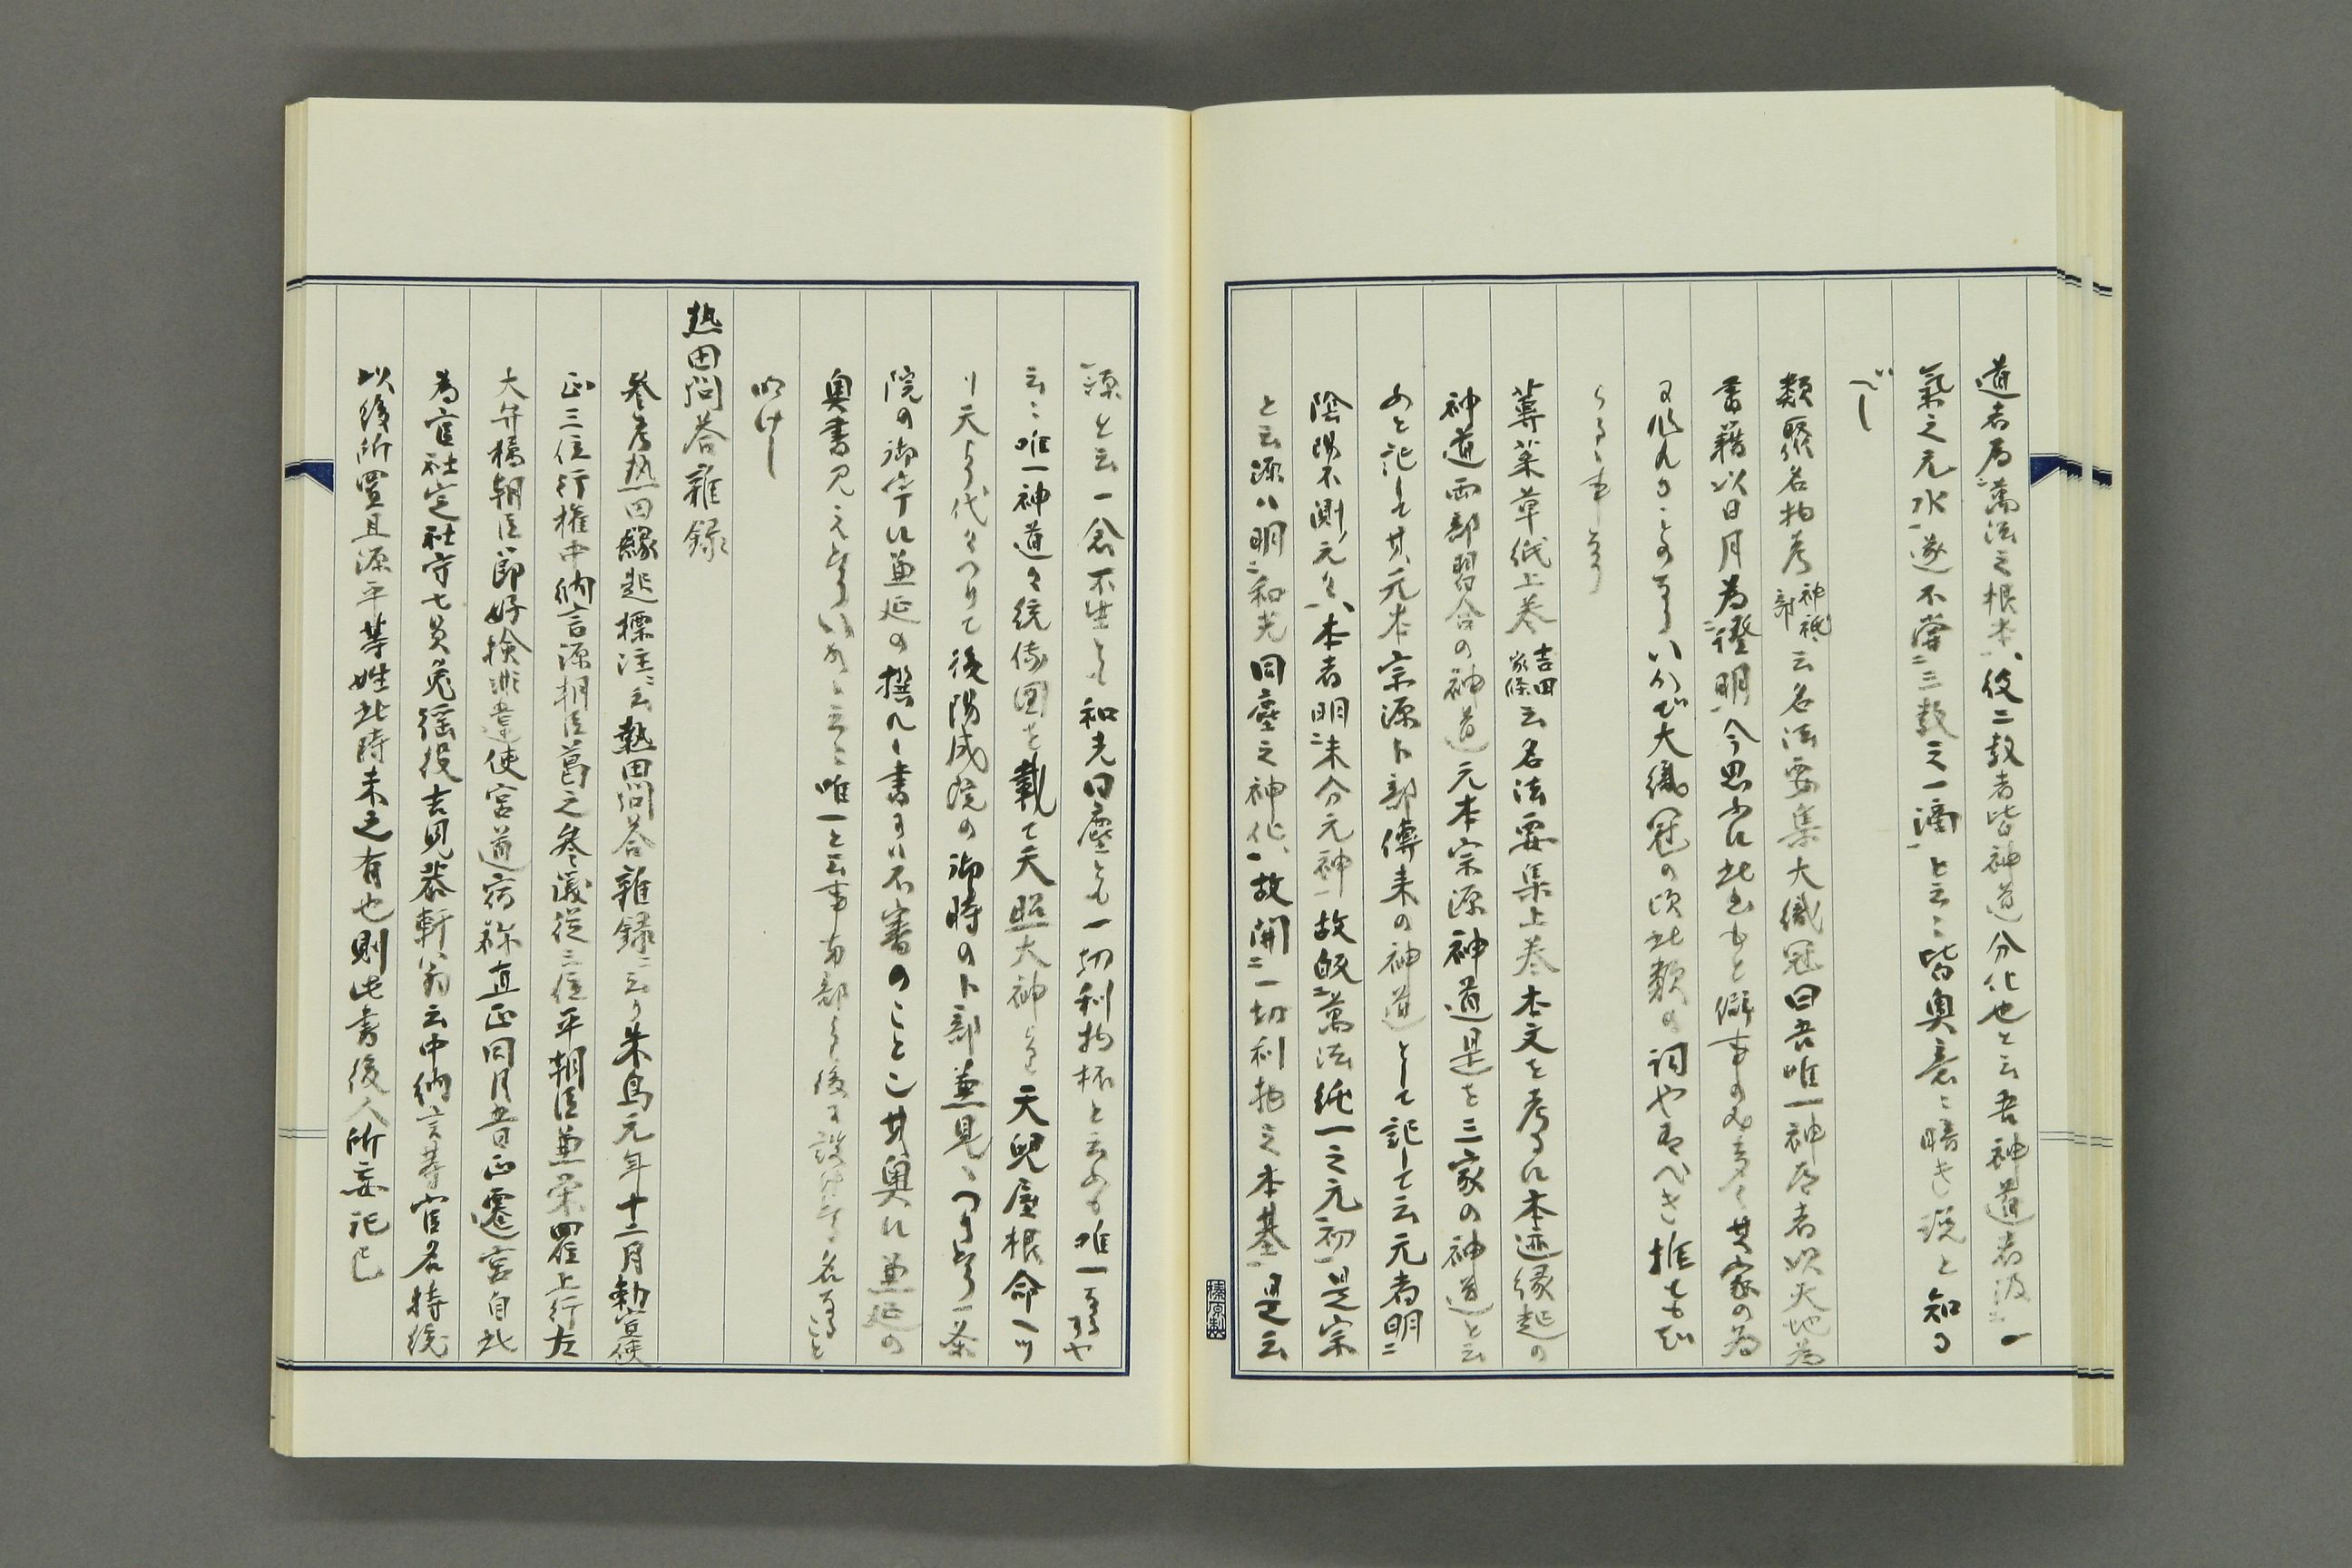 道者為萬法之根本、彼二教者皆神道分化也と云吾神道者汲一
氣之元水遂不嘗三教之一滴と云ミ皆奥意ニ暗き説と知る
べし
類聚名物考神祇部云名法要集大織冠曰吾唯一神道者以天地為
書籍以日月為證明今思ふに此書もと僞事のみ多く其家の為
に作れることのなりいかで大織冠の頃此類の詞やあるべき推もて
しる事なり
蓴菜草紙上巻吉田家條云名法要集上巻本文を考るに本迹縁起の
神道両部習合の神道元本宗源神道是を三家の神道と云
めと記して其元本宗源卜部傳来の神道として記して云元者明ニ
陰陽不測ノ元々本者明ニ未分元神故皈萬法純一之元初是宗
と云源ハ明ニ和光同塵之神化故開ニ一切利物之本基是云
源と云一念不生とも和光同塵とも一切利物杯と云めも唯一なるや
云ミ唯一神道々統係図を載て天照大神より天兒屋根命へツ
リ天より代々つりて後陽成院の御時の卜部兼見へつゝきあり一条
院の御宇に兼延の撰れし書には不審のことこ其奥に兼延の
奥書見えたりいかと云ミ唯一と云事両部より後に設けたる名なること
明けし
熱田問答雜録
参考熱田縁起標注ニ云熱田問答雜録ニ云う朱鳥元年十二月勅宣使
正三位行権中納言源朝臣葛之参議従三位平朝臣兼栄四位上行左
大弁橘朝臣節好検非違使宮道宿祢直正同月吉日正遷宮自此
為官社定社守七員免徭役吉見恭軒翁云中納言等官名持統
以後所置且源平等姓此時未之有也則此書後人所妄記已
榛原製